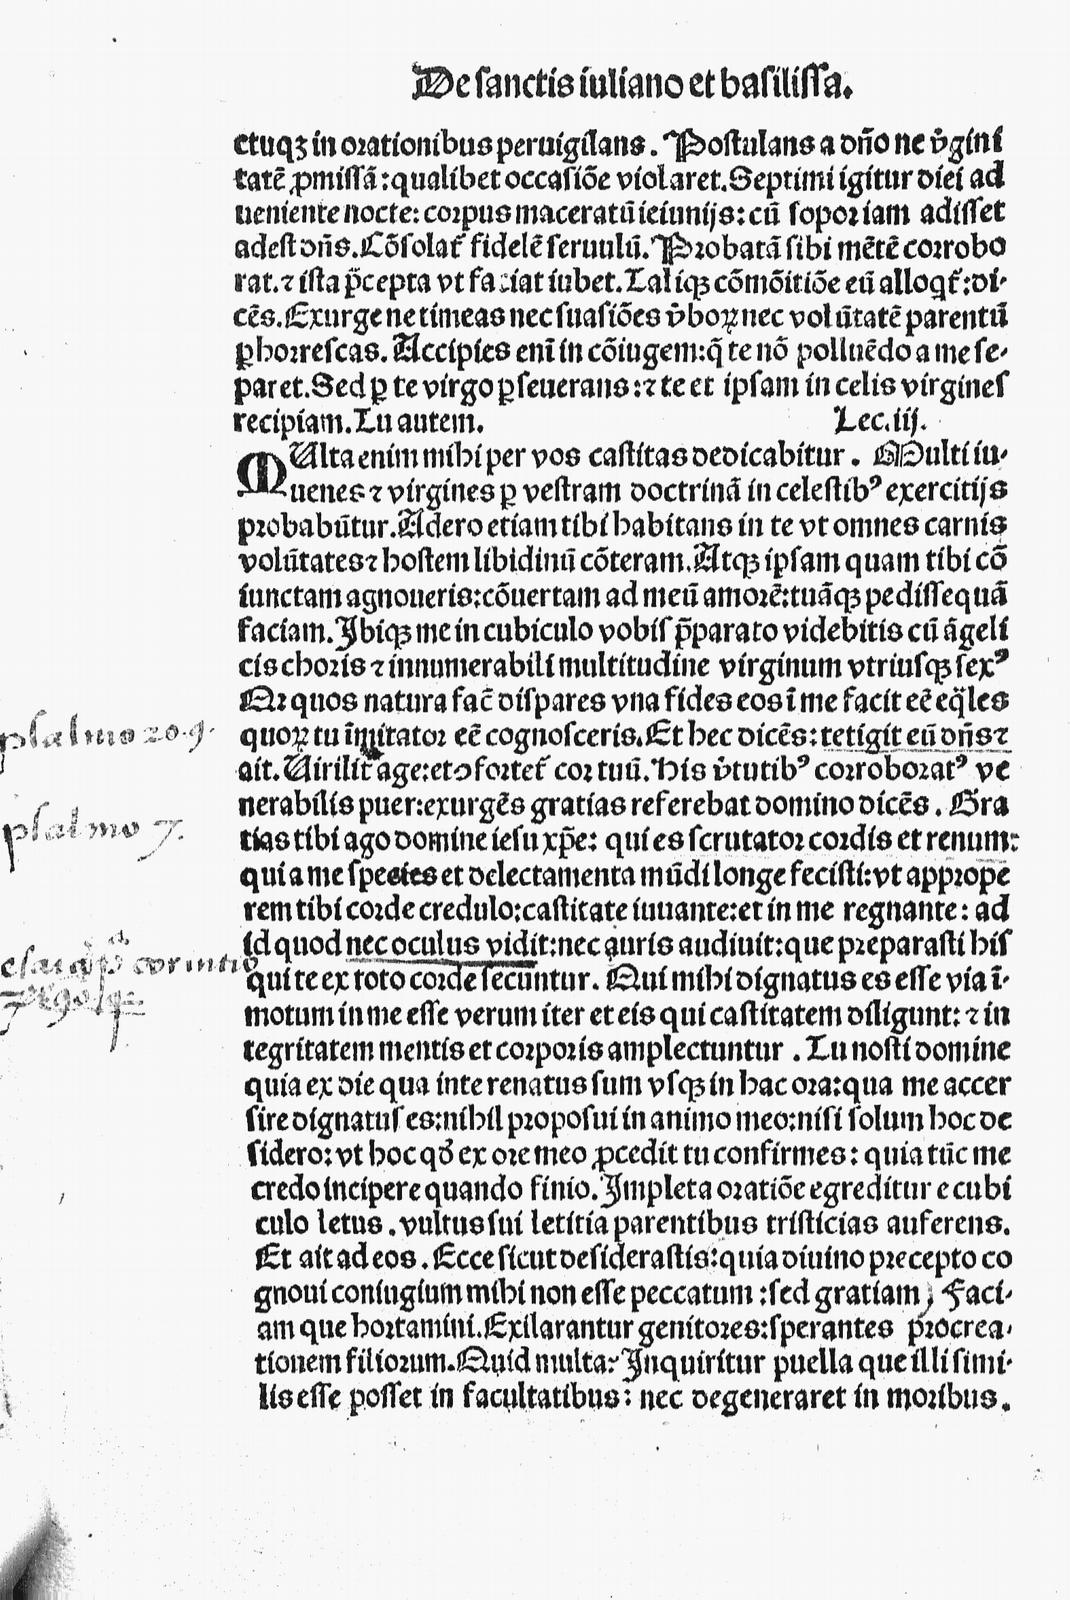 De sanctis iuliano et basilissa.
ctuqȝ in orationibus peruigilans. Postulans a dño ne v̾gini
tatē ꝓmissā: qualibet occasiōe violaret. Septimi igitur diei ad
ueniente nocte: corpus maceratū ieiunijs: cū sopor iam adisset
adest dñs. Cōsolat᷑ fidelē seruulū. Probatā sibi mētē corrobo
rat. ⁊ ista p̄cepta vt faciat iubet. Taliqȝ cōmōitiōe eū alloqt᷑: di-
cēs. Exurge ne timeas nec suasiōes v̾boꝝ nec volūtatē parentū
ꝑhorrescas. Accipies eni in cōiugem: q̄ te nō polluēdo a me se-
paret. Sed ꝑ te virgo ꝑseuerans: ⁊ te et ipsam in celis virgines
recipiam. Tu autem. Lec. iij.
MUlta enim mihi per vos castitas dedicabitur. Multi iu-
uenes ⁊ virgines ꝑ vestram doctrinā in celestibꝰ exercitijs
probabūtur. Adero etiam tibi habitans in te vt omnes carnis
volūtates ⁊ hostem libidinū cōteram. Atqȝ ipsam quam tibi cō
iunctam agnoueris: cōuertam ad meū amorē: tuāqȝ pedissequā
faciam. Ibiqȝ me in cubiculo vobis p̄parato videbitis cū āgeli
cis choris ⁊ innumerabili multitudine virginum vtriusqȝ sexꝰ
Qr quos natura fac̄ dispares vna fides eos ī me facit eē eq̄les
quoꝝ tu īmitator eē cognosceris. Et hec dicēs: tetigit eū dñs ⁊
ait. Uirilit᷑ age: et ↄfortet᷑ cor tuū. His v̾tutibꝰ corroboratꝰ ve
nerabilis puer: exurgēs gratias referebat domino dicēs. Gra
tias tibi ago domine iesu xp̄e: qui es scrutator cordis et renum:
qui a me species et delectamenta mūdi longe fecisti: vt appro
pe
rem tibi corde credulo: castitate iuuante: et in me regnante: ad
id quod nec oculus vidit: nec auris audiuit: que preparasti his
qui te ex toto corde secuntur. Qui mihi dignatus es esse via ī-
motum in me esse verum iter et eis qui castitatem diligunt: ⁊ in
tegritatem mentis et corporis amplectuntur. Tu nosti domine
quia ex die qua inte renatus sum vsqȝ in hac ora: qua me accer
sire dignatus es: nihil proposui in animo meo: nisi solum hoc de
sidero: vt hoc qd̾ ex ore meo ꝓcedit tu confirmes: quia tūc me
credo incipere quando finio. Impleta oratiōe egreditur e cubi
culo letus. vultus sui letitia parentibus tristicias auferens.
Et ait ad eos. Ecce sicut desiderastis: quia diuino precepto co
gnoui coniugium mihi non esse peccatum: sed gratiam, Faci-
am que hortamini. Exilarantur genitores: sperantes procrea-
tionem filiorum. Quid multa? Inquiritur puella que illi simi-
lis esse posset in facultatibus: nec degeneraret in moribus.
psalmo 20.9.
psalmo 7.
corintio